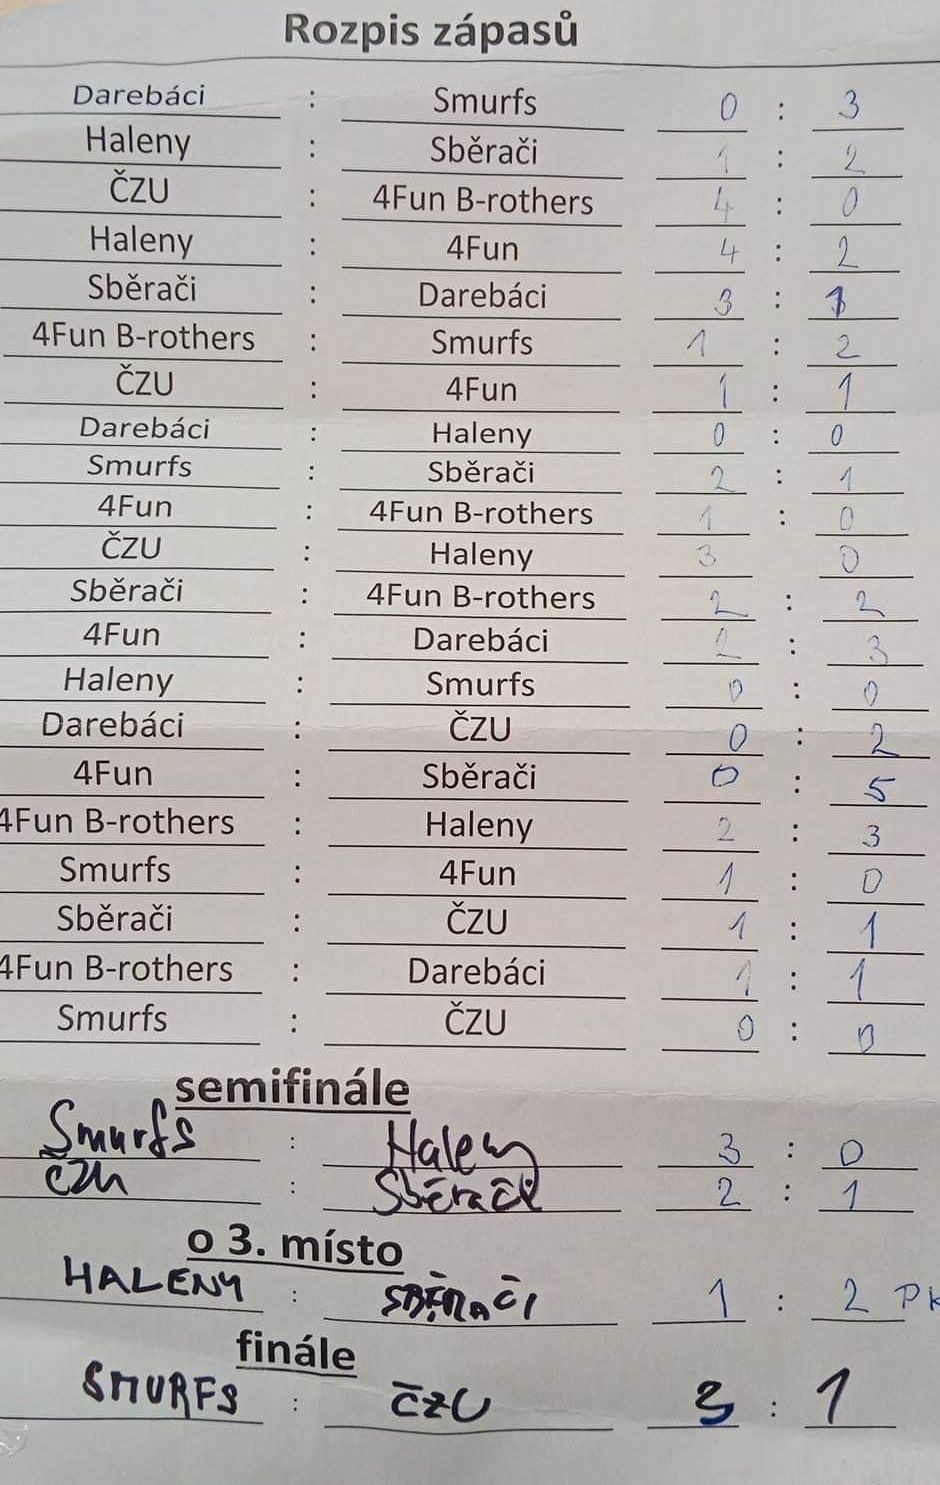 Rozpis zápasů
Darebáci : Smurfs 0 : 3
Haleny : Sběrači 1 : 2
ČZU : 4Fun B-rothers 4 : 0
Haleny : 4Fun 4 : 2
Sběrači : Darebáci 3 : 1
4Fun B-rothers : Smurfs 1 : 2
ČZU : 4Fun 1 : 1
Darebáci : Haleny 0 : 0
Smurfs : Sběrači 2 : 1
4Fun : 4Fun B-rothers 1 : 0
ČZU : Haleny 3 0
Sběrači : 4Fun B-rothers 2 : 2
4Fun : Darebáci 2 : 3
Haleny : Smurfs 0 : 0
Darebáci : ČZU 0 : 2
4Fun : Sběrači 0 : 5
4Fun B-rothers : Haleny 2 : 3
Smurfs : 4Fun 1 : 0
Sběrači : ČZU 1 : 1
4Fun B-rothers : Darebáci 1 : 1
Smurfs : ČZU 0 : 0
semifinále
Smurfs : Haleny 3 : 0
CZU : Sběrači 2 : 1
o 3. místo
HALENY : SBĚRAČI 1 : 2 PK
finále
SMURFS : ČZU 3 : 1